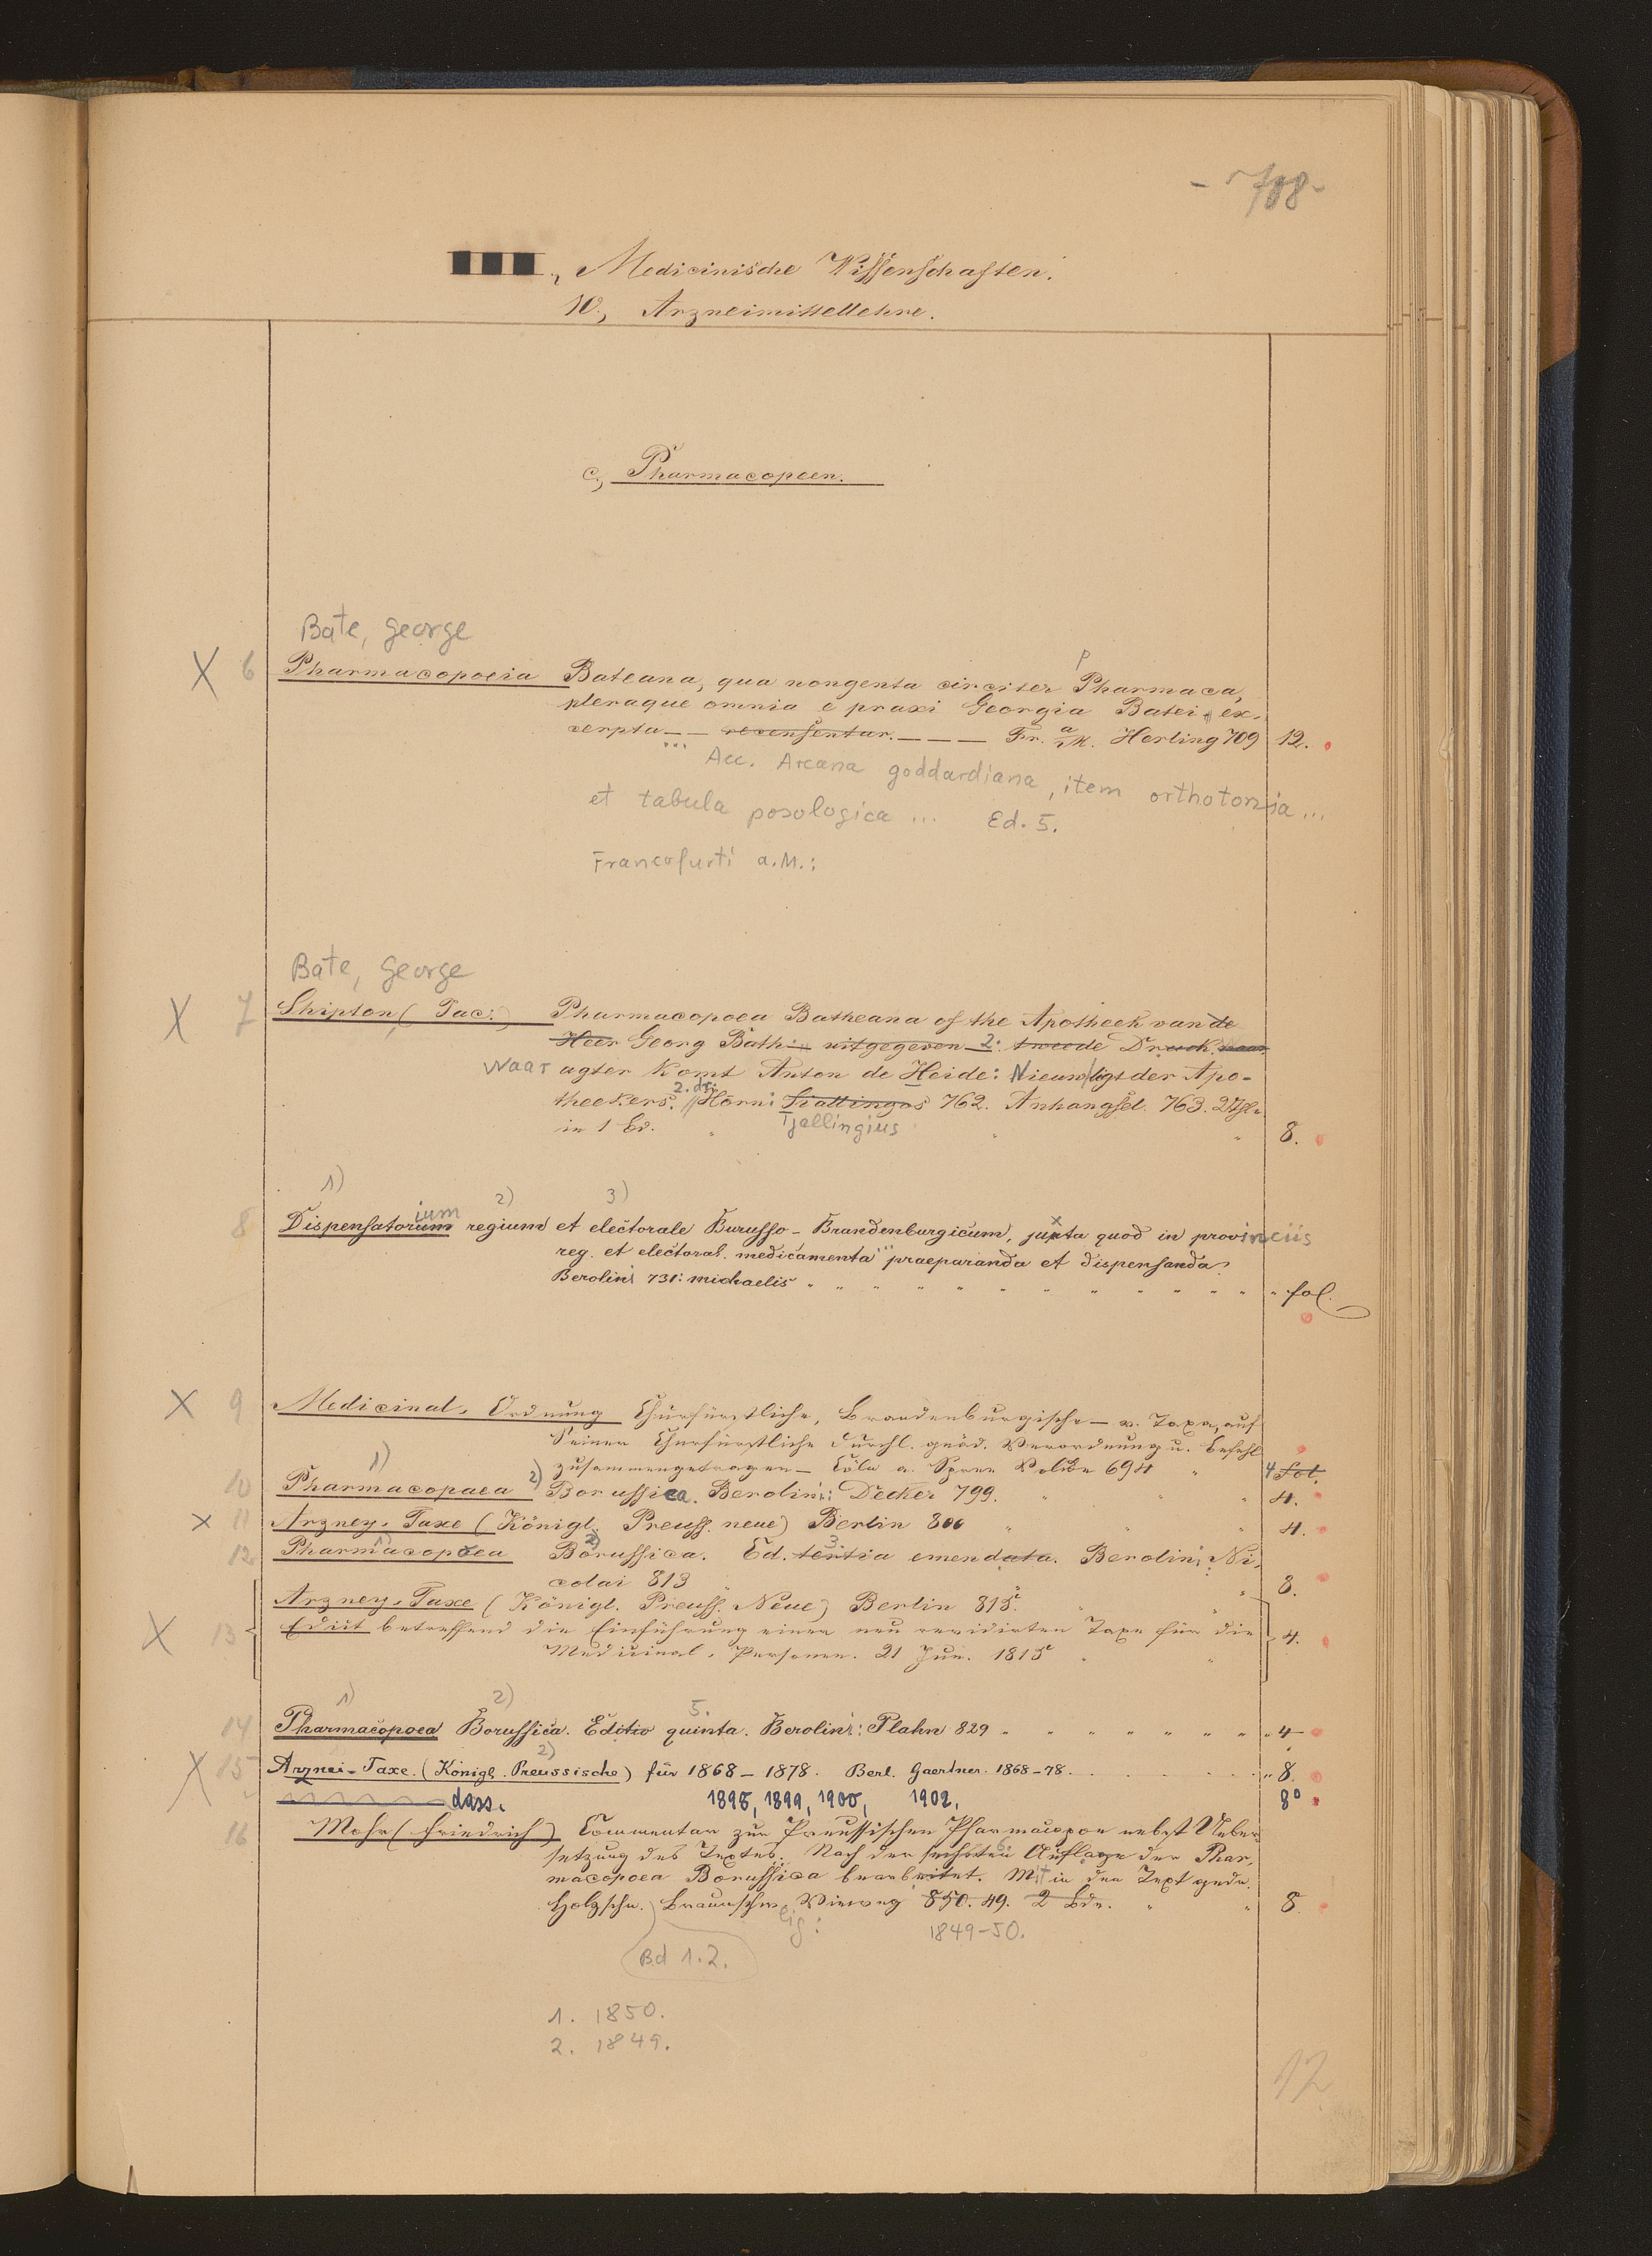 - 708 -
Medicinische Wissenschaften.
10., Arzneimittellehre.
c., Pharmacopeen.
Bate, George
X 6 Pharmacopoeia Bateana, qua nongenta circiter Pharmaca,
pleraque omnia e praxi Georgia Batei ex-
cerpta — — recensentur. — — — Fr. a/M. Herling 709 12.
... Acc. Arcana goddardiana, item orthotonia ...
et tabula posologica ... Ed. 5.
Francofurti a.M.:
Bate, George
X 7 Shipton (Jac.) Pharmacopoea Batheana of the Apotheek van de
Heer Georg Bath: — uitgegeven — 2. tweede Druck. waar
Waar agter Komt Anton de Heide: Nieuw ligt der Apo-
theekers. 2. dr. Horn: 762. Anhangsel. 763. 2
in 1 Bd. Tjallingius 8.
1) 2) 3)
8 Dispensatorium regium et electorale Burusso-Brandenburgicum, juxta quod in provinciis
reg. et electoral. medicamenta ... praeparanda et dispensanda.
Berolini 731: michaelis " fol.
X 9 Medicinal-Ordnung Churfürstliche, Brandenburgische — u. Taxa, auf
Seiner Churfürstliche Durchl. gnäd. Verordnung u. Befehl
zusammengetragen — Cöln a. Spree 694 4 fol.
10 1) Pharmacopaea 2) Borussica. Berolini: Decker 799. 4.
X 11 Arzney-Taxe (Königl. Preuss. neue) Berlin 800 4.
12 1) Pharmacopoea 2) Borussica. Ed. tertia 3. emendata. Berolini, Ni-
colai 813 8.
Arzney-Taxe (Königl. Preuss. Neue) Berlin 815.
X 13 Edict betreffend die Einführung einer neu revidirten Taxe für die 4.
Medicinal-Personen. 21 Jun. 1815
1) 2) 5.
14 Pharmacopoea Borussica. Editio quinta. Berolini: Plahn 829 4
X 15 Arznei-Taxe. (Königl. Preussische) 2) für 1868-1878. Berl. Gaertner. 1868-78. 8.
dass. 1898, 1899, 1900, 1902. 8°
16 Mohr (Friedrich) Commentar zur Preussischen Pharmacopoe nebst Ueber-
setzung des Textes. Nach der sechsten 6. Auflage der Phar-
macopoea Borussica bearbeitet. Mit in den Text gedr.
Holzschn. Braunschweig: Vieweg 850. 49. 2 Bde. 8
1849-50.
Bd 1.2.
1. 1850.
2. 1849.
12